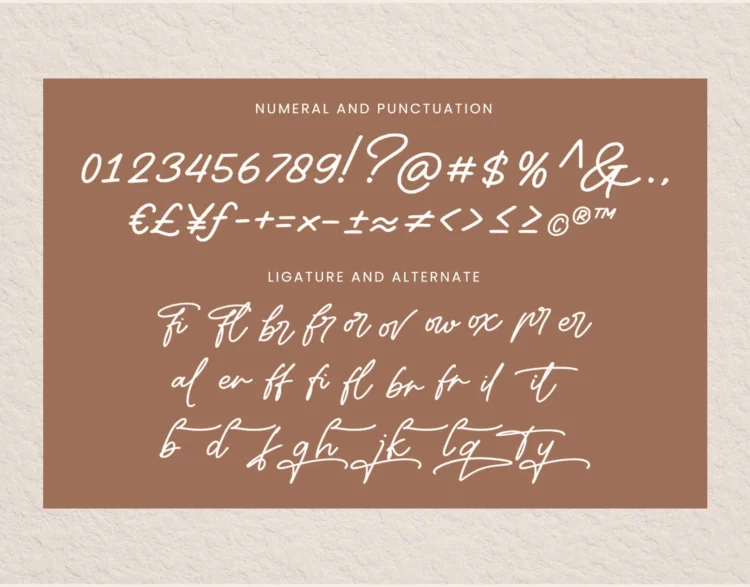 NUMERAL AND PUNCTUATION
0123456789!?@#$%^&.,
€£¥ƒ-+=×–±≈≠<>≤≥©®™
LIGATURE AND ALTERNATE
Fi Fl br fr or ov ow ox pr er
al en ff fi fl bn fn il it
b d f g h j k l q t y